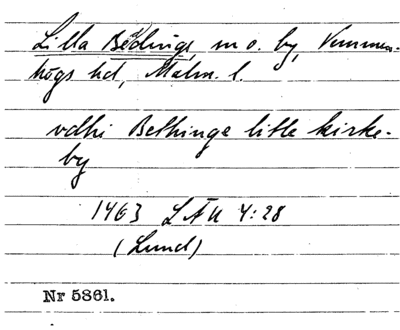 Lilla Beddinge, sn o. by, Vemmen-
högs hd, Malm. l.
vdhi Bethinge litle kirke-
by
1463 LÄU 4:28
(Lund)
Nr 5861.